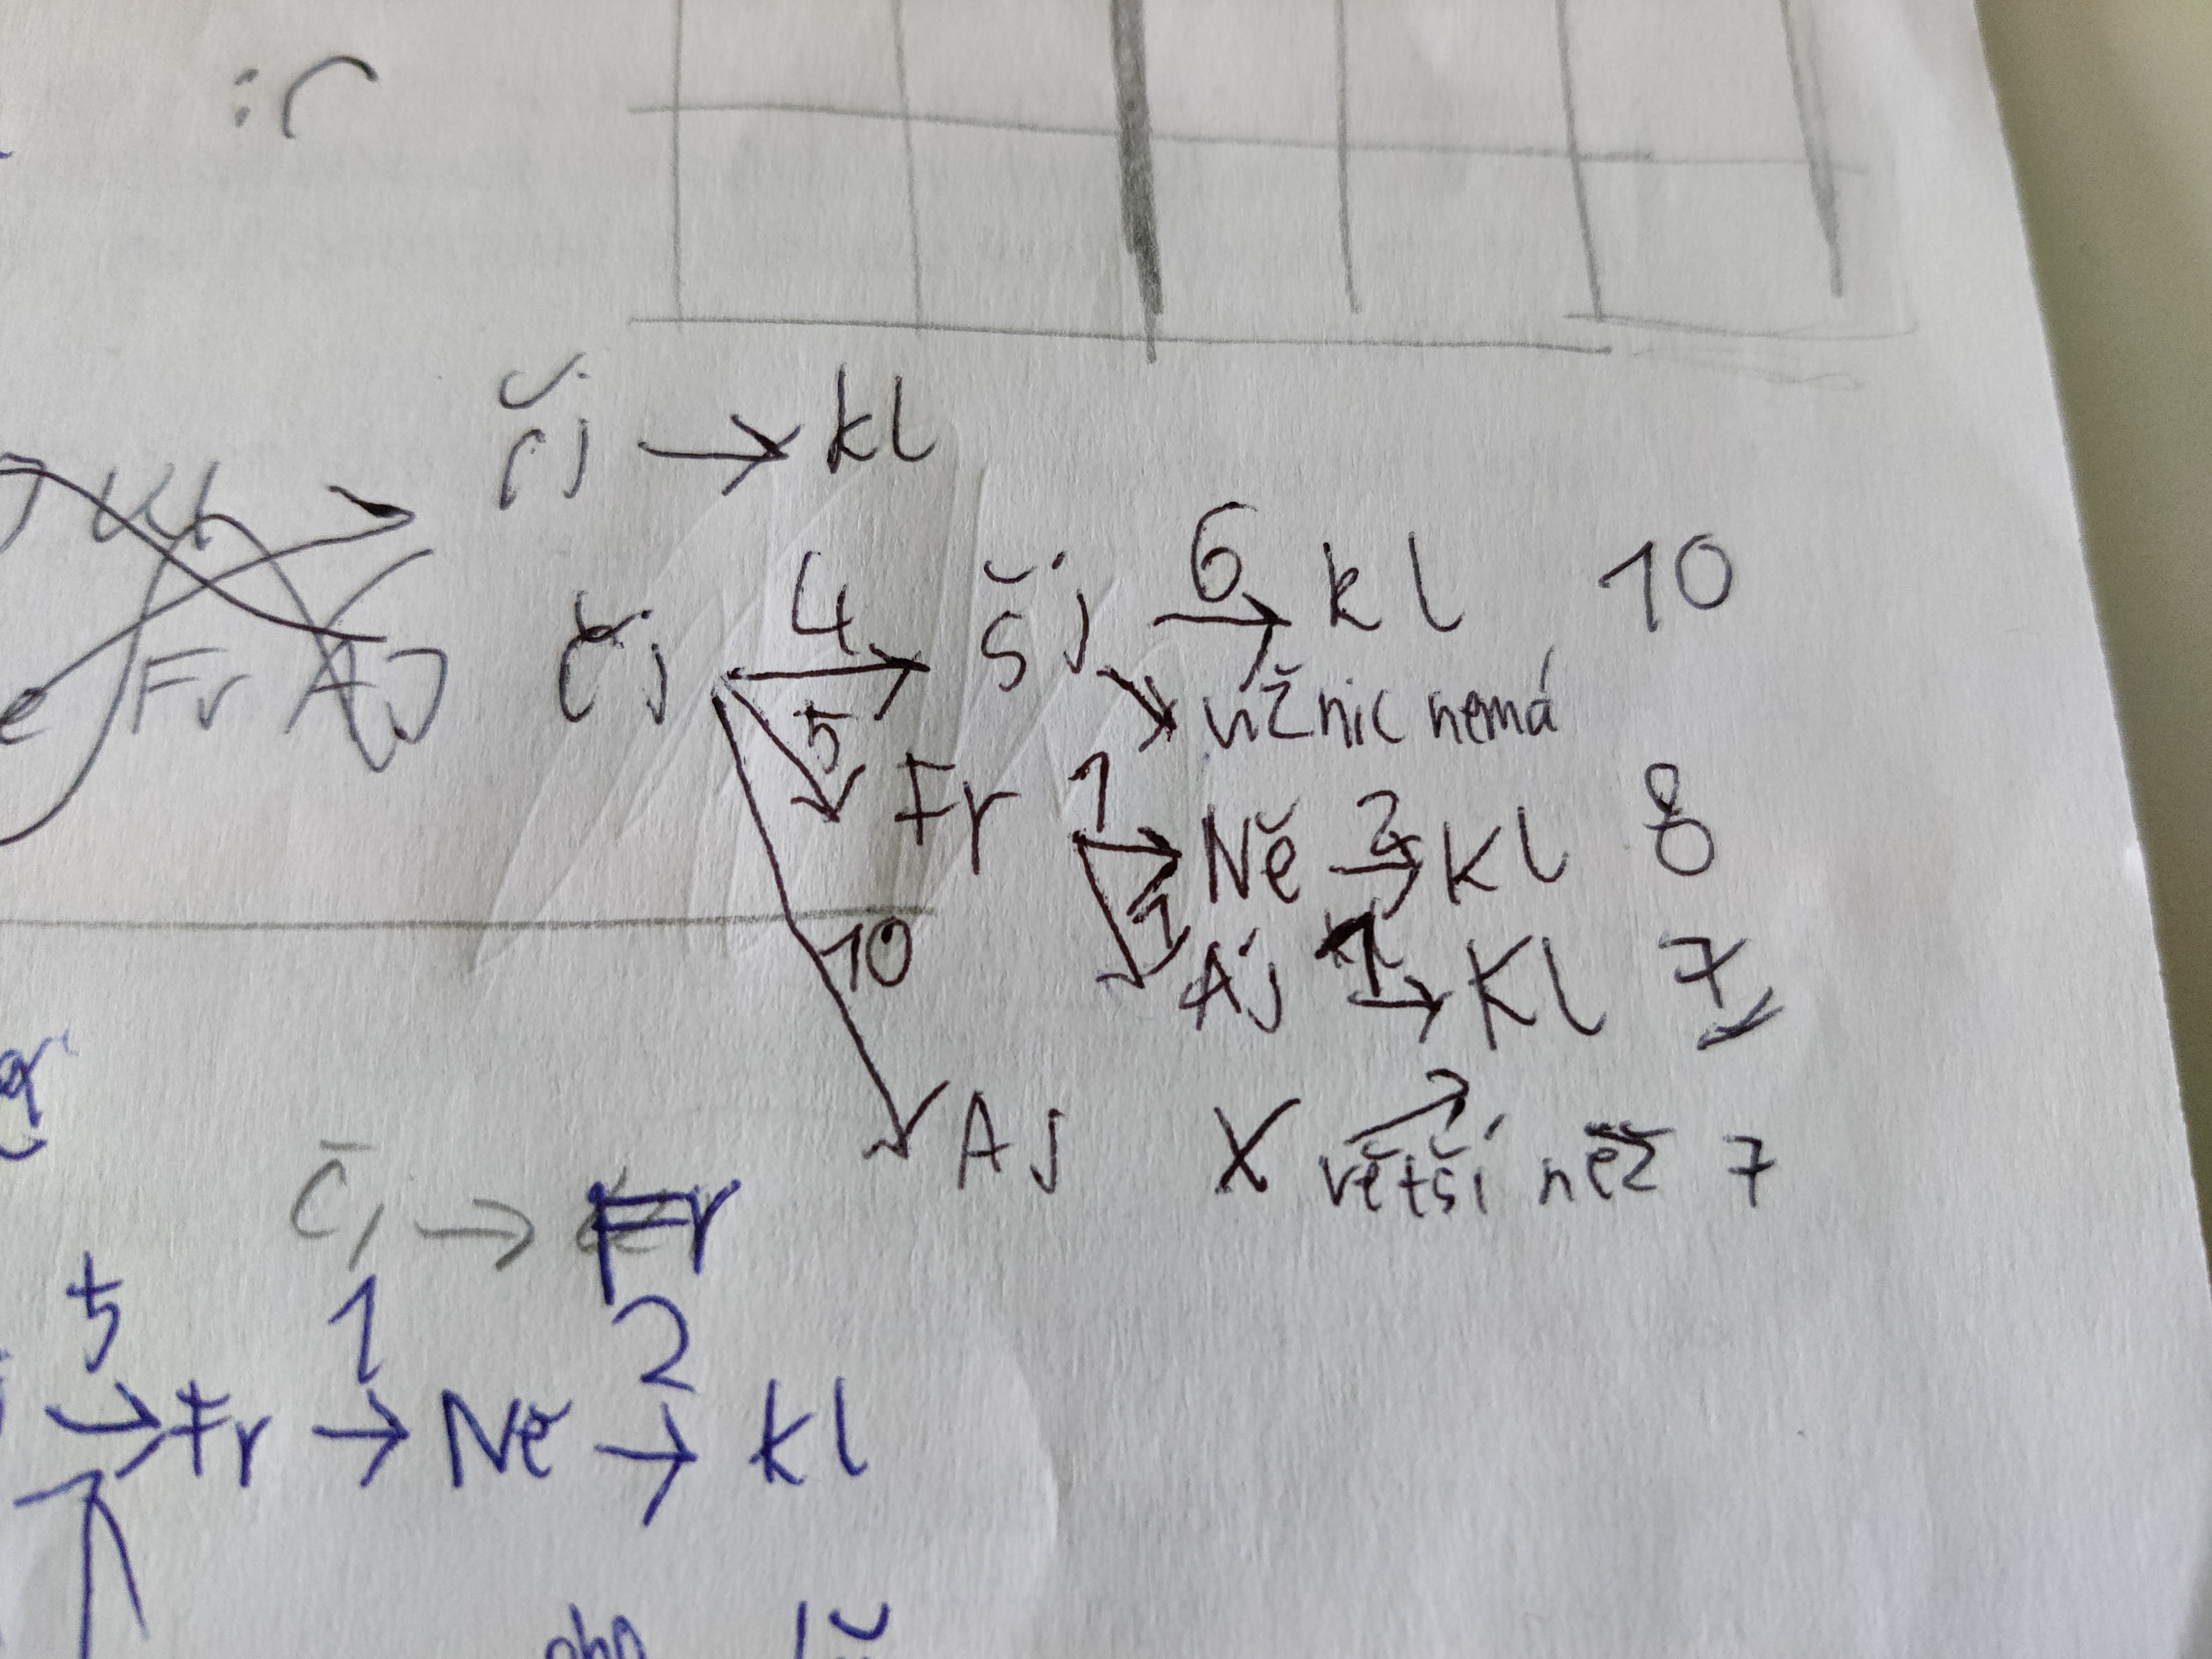 čj → kl
čj 4 → šj 6 → kl 10
už nic nemá
5 Fr 1 → Ně 2 → Kl 8
1 Aj 1 → Kl 7
10 Aj X větší než 7
Fr Aj
Čj → Fr
5 1 2
→ Fr → Ně → kl